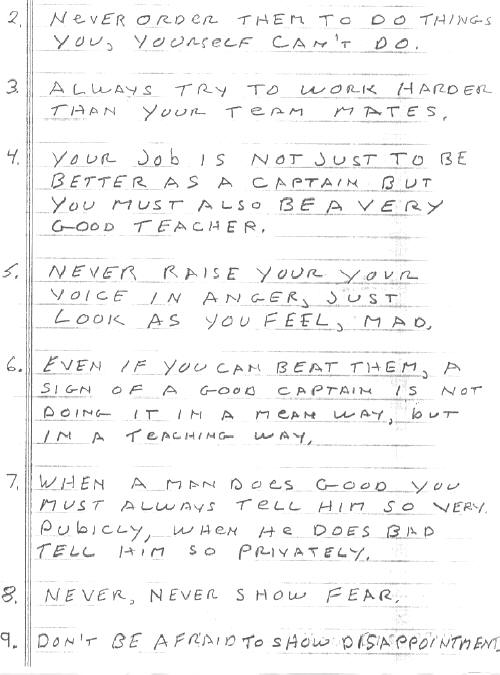 2. NEVER ORDER THEM TO DO THINGS
YOU, YOURSELF CAN'T DO.
3. ALWAYS TRY TO WORK HARDER
THAN YOUR TEAM MATES.
4. YOUR JOB IS NOT JUST TO BE
BETTER AS A CAPTAIN BUT
YOU MUST ALSO BE A VERY
GOOD TEACHER.
5. NEVER RAISE YOUR YOUR
VOICE IN ANGER, JUST
LOOK AS YOU FEEL, MAD.
6. EVEN IF YOU CAN BEAT THEM, A
SIGN OF A GOOD CAPTAIN IS NOT
DOING IT IN A MEAN WAY, BUT
IN A TEACHING WAY.
7. WHEN A MAN DOES GOOD YOU
MUST ALWAYS TELL HIM SO VERY.
PUBICLY, WHEN HE DOES BAD
TELL HIM SO PRIVATELY.
8. NEVER, NEVER SHOW FEAR.
9. DON'T BE AFRAID TO SHOW DISAPPOINTMENT.